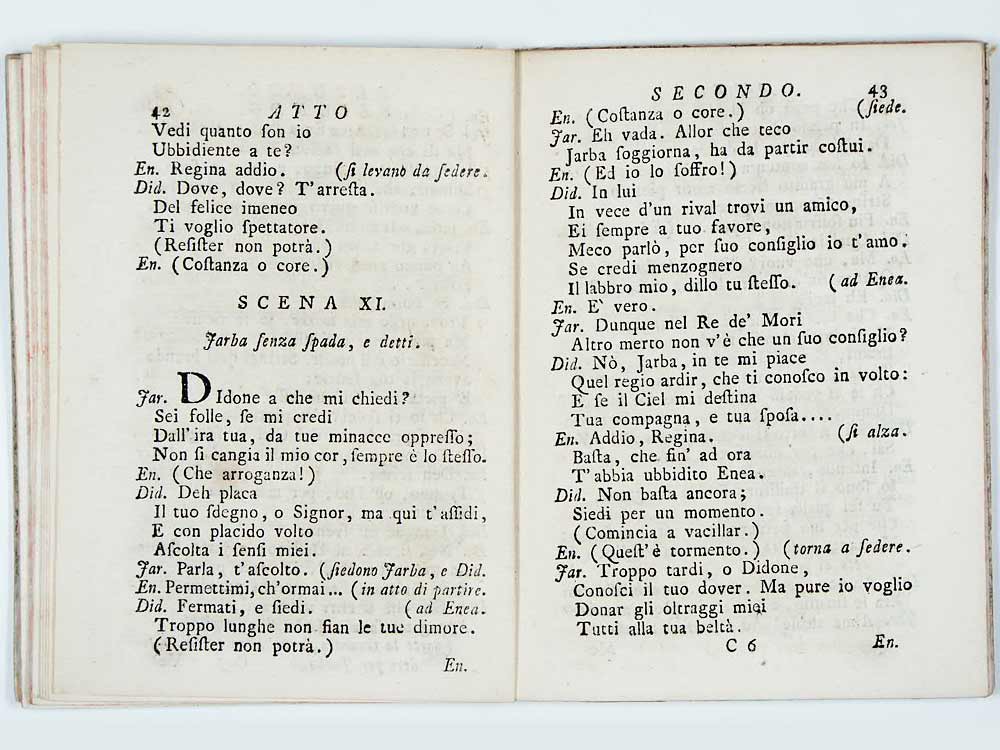 42 ATTO
Vedi quanto ſon io
Ubbidiente a te?
En. Regina addio. (ſi levano da ſedere.
Did. Dove, dove? T'arreſta.
Del felice imeneo
Ti voglio ſpettatore.
(Reſiſter non potrà.)
En. (Coſtanza o core.)
SCENA XI.
Jarba ſenza ſpada, e detti.
Jar. DIdone a che mi chiedi?
Sei folle, ſe mi credi
Dall'ira tua, da tue minacce oppreſſo;
Non ſi cangia il mio cor, ſempre è lo ſteſſo.
En. (Che arroganza!)
Did. Deh placa
Il tuo ſdegno, o Signor, ma qui t'aſſidi,
E con placido volto
Aſcolta i ſenſi miei.
Jar. Parla, t'aſcolto. (ſiedono Jarba, e Did.
En. Permettimi, ch'ormai... (in atto di partire.
Did. Fermati, e ſiedi. (ad Enea.
Troppo lunghe non fian le tue dimore.
(Reſiſter non potrà.)
En.
SECONDO. 43
En. (Coſtanza o core.) (ſiede.
Jar. Eh vada. Allor che teco
Jarba ſoggiorna, ha da partir coſtui.
En. (Ed io lo ſoffro!)
Did. In lui
In vece d'un rival trovi un amico,
Ei ſempre a tuo favore,
Meco parlò, per ſuo conſiglio io t'amo.
Se credi menzognero
Il labbro mio, dillo tu ſteſſo. (ad Enea.
En. E' vero.
Jar. Dunque nel Re de' Mori
Altro merto non v'è che un ſuo conſiglio?
Did. Nò, Jarba, in te mi piace
Quel regio ardir, che ti conoſco in volto:
E ſe il Ciel mi deſtina
Tua compagna, e tua ſpoſa....
En. Addio, Regina. (ſi alza.
Baſta, che fin' ad ora
T'abbia ubbidito Enea.
Did. Non baſta ancora;
Siedi per un momento.
(Comincia a vacillar.)
En. (Queſt'è tormento.) (torna a ſedere.
Jar. Troppo tardi, o Didone,
Conoſci il tuo dover. Ma pure io voglio
Donar gli oltraggi miei
Tutti alla tua beltà.
C 6 En.